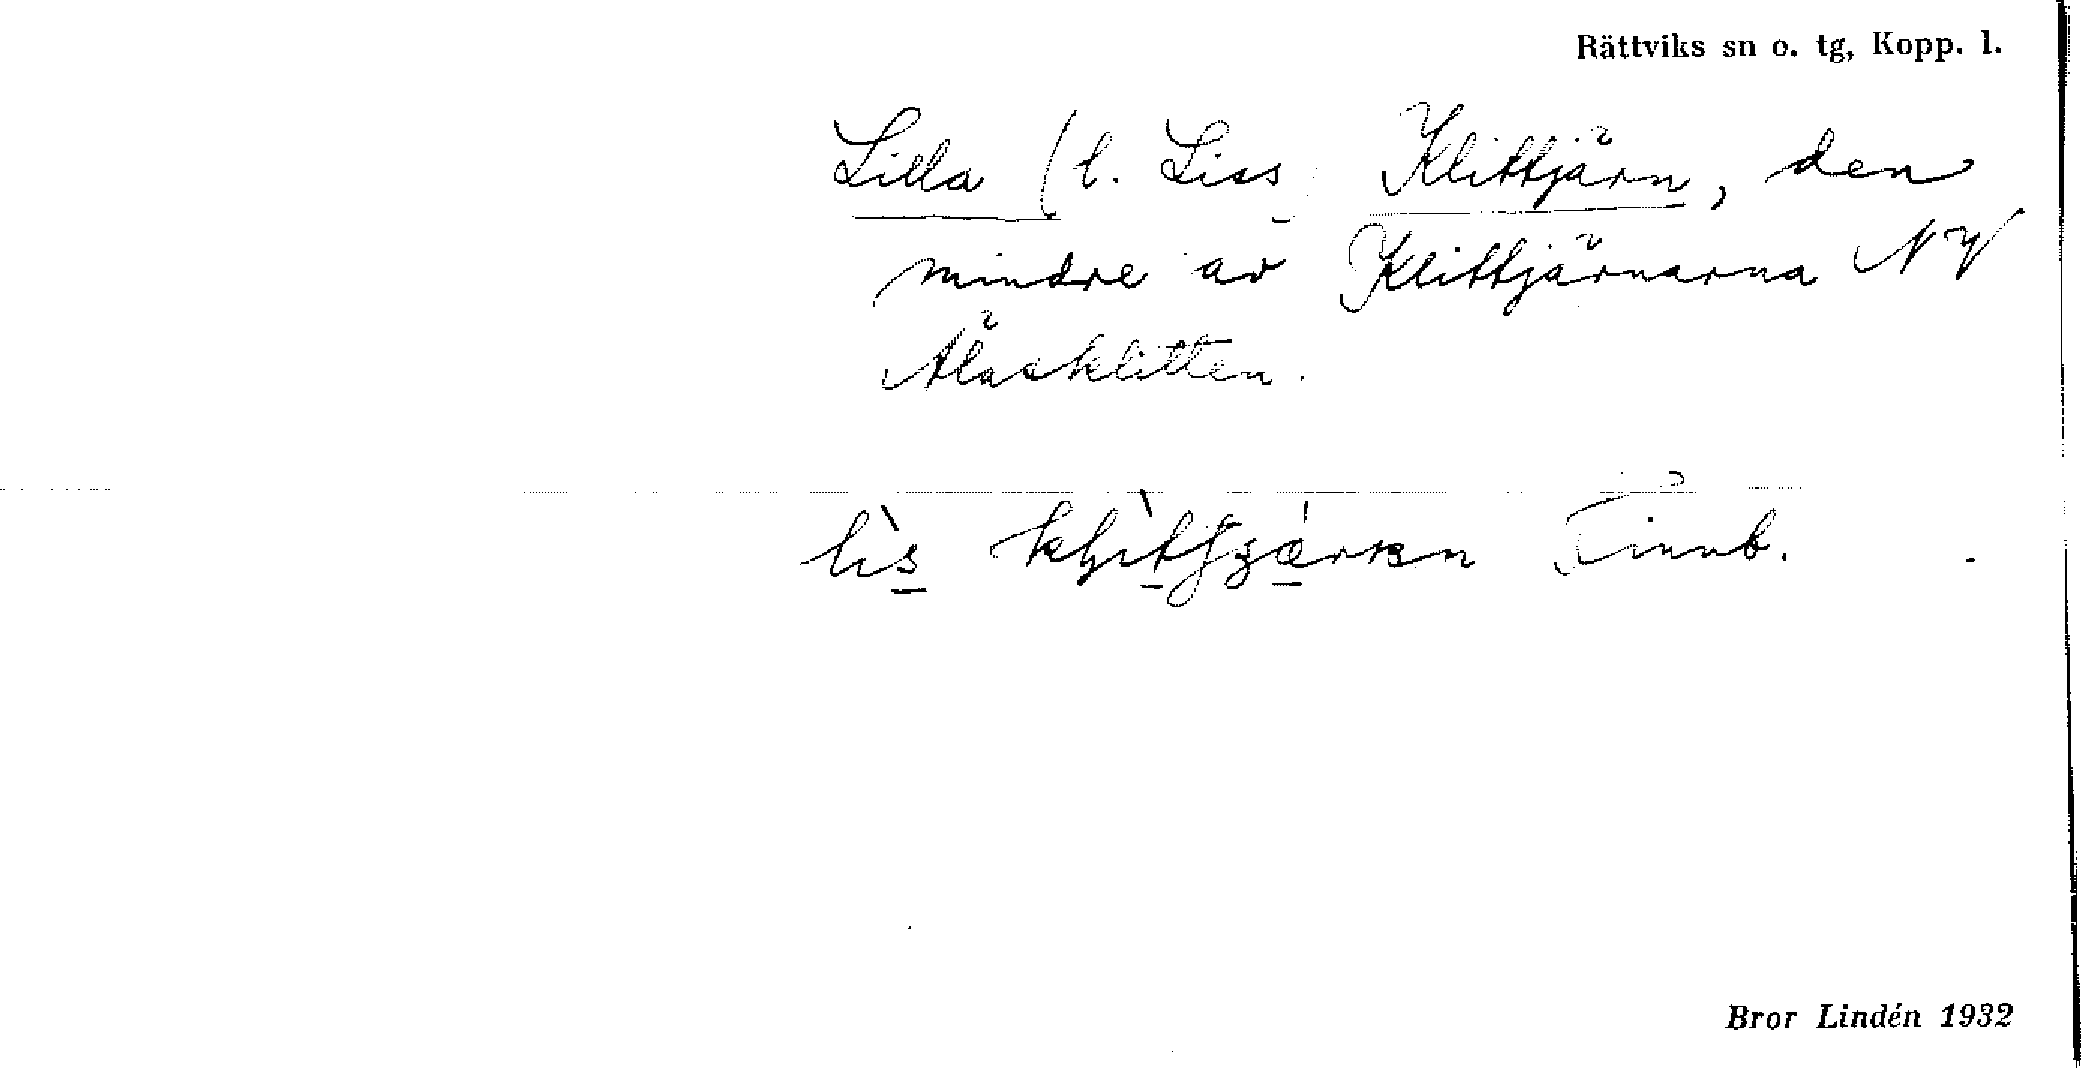 Rättviks sn o. tg, Kopp. l.
Lilla (l. Liss) Klittjärn, den
mindre av Klittjärnarna NV
Ålasklitten.
lìs
Bror Lindén 1932